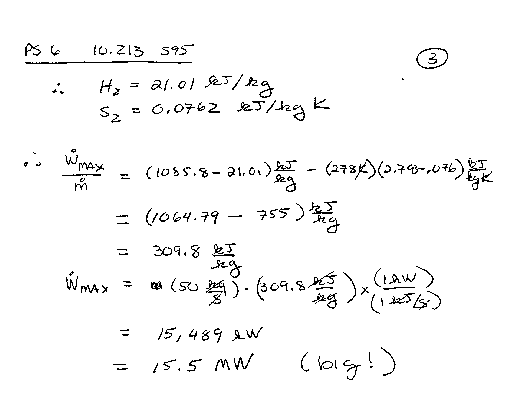 PS 6 10.213 S95
3
∴ H₂ = 21.01 kJ/kg
S₂ = 0.0762 kJ/kg K
∴ ẆMAX/ṁ = (1085.8 - 21.01) kJ/kg - (278K)(2.793-.076) kJ/kgK
= (1064.79 - 755) kJ/kg
= 309.8 kJ/kg
ẆMAX = (50 kg/s) · (309.8 kJ/kg) × (1 kW)/(1 kJ/s)
= 15,489 kW
= 15.5 MW (big!)